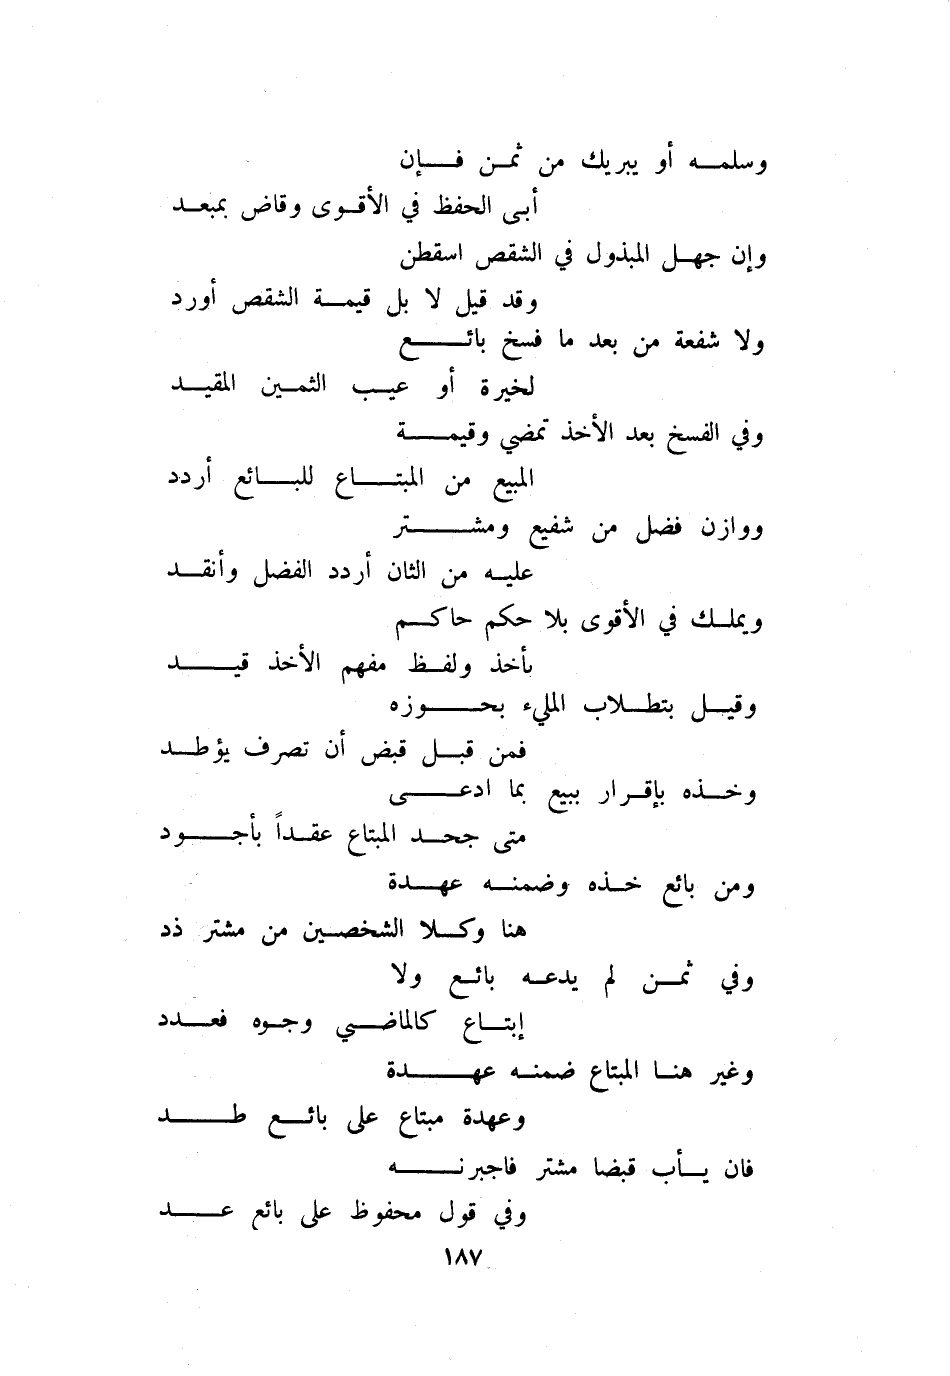 وسلمه أو يبريك من ثمن فإن
أبى الحفظ في الأقوى وقاض بمبعد
وإن جهل المبذول في الشقص اسقطن
وقد قيل لا بل قيمة الشقص أورد
ولا شفعة من بعد ما فسخ بائع
لخيرة أو عيب الثمين المقيد
وفي الفسخ بعد الأخذ تمضي وقيمة
المبيع من المبتاع للبائع أردد
ووازن فضل من شفيع ومشتر
عليه من الثان أردد الفضل وأنقد
ويملك في الأقوى بلا حكم حاكم
بأخذ ولفظ مفهم الأخذ قيد
وقيل بتطلاب المليء بحوزه
فمن قبل قبض أن تصرف يؤطد
وخذه بإقرار ببيع بما ادعى
متى جحد المبتاع عقداً بأجود
ومن بائع خذه وضمنه عهدة
هنا وكلا الشخصين من مشتر ذد
وفي ثمن لم يدعه بائع ولا
إبتاع كالماضي وجوه فعدد
وغير هنا المبتاع ضمنه عهدة
وعهدة مبتاع على بائع طد
فان يأب قبضا مشتر فاجبرنه
وفي قول محفوظ على بائع عد
١٨٧